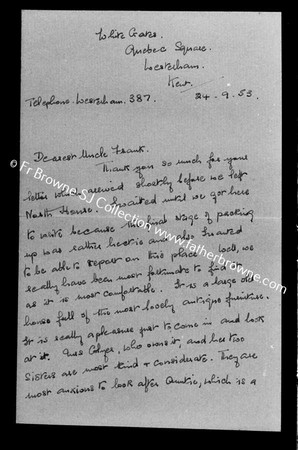 White Gates.
Quebec Square.
Westerham.
Kent.
Telephone. Westerham. 387.
24-9-53.
Dearest Uncle Frank.
Thank you so much for your
letter which arrived shortly before we left
North House. I waited until we got here
to write because the final stage of packing
up was rather hectic and also I wanted
to be able to report on this place. Well, we
really have been most fortunate to find it
as it is most comfortable. It is a large old
house full of the most lovely antique furniture.
It is really a pleasure just to come in and look
at it. Miss, who owns it, and her two
sisters are most kind + considerate. They are
most anxious to look after Auntie, which is a
© Fr Browne SJ Collection www.fatherbrowne.com